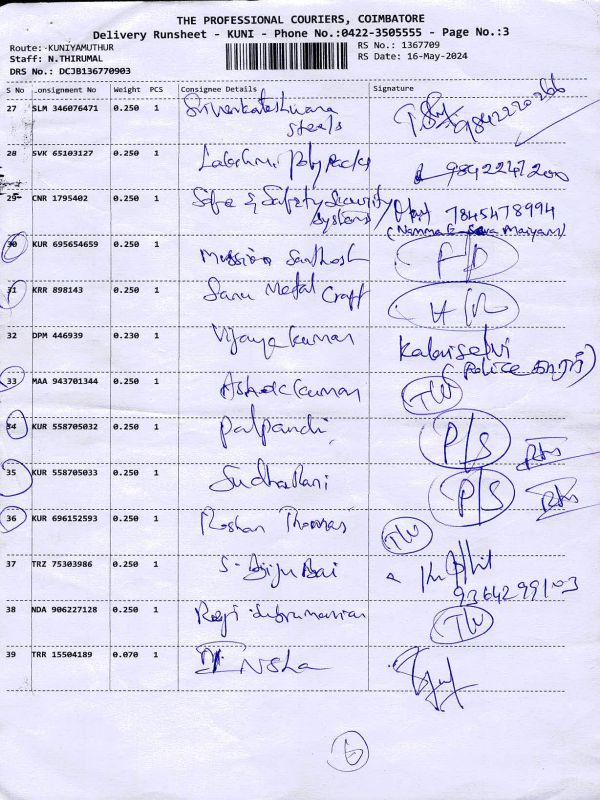 THE PROFESSIONAL COURIERS, COIMBATORE
Delivery Runsheet - KUNI - Phone No.:0422-3505555 - Page No.:3
Route: KUNIYAMUTHUR
RS No.: 1367709
Staff: N.THIRUMAL
RS Date: 16-May-2024
DRS No.: DCJB136770903
S No Consignment No Weight PCS Consignee Details Signature
27 SLM 346076471 0.250 1 Srivenkateshwara
steels
9842220266
28 SVK 65103127 0.250 1 Lakshmi Polypacks 9842247200
29 CNR 1795402 0.250 1 Safe & Safety Security
Systems 7845478994
(Namma E Seva Maiyam)
30 KUR 695654659 0.250 1 Mission Santhosh
31 KRR 898143 0.250 1 Sanu Metal Craft
32 DPM 446939 0.230 1 Vijayakumar Kalaiselvi
(Police காரர்)
33 MAA 943701344 0.250 1 Ashok kumar
34 KUR 558705032 0.250 1 Palpandi P/S
35 KUR 558705033 0.250 1 Sudha Rani P/S
36 KUR 696152593 0.250 1 Roshan Thomas
37 TRZ 75303986 0.250 1 S. Biju Bai
9364299103
38 NDA 906227128 0.250 1 Raji Subramanian
39 TRR 15504189 0.070 1 Nisha
6